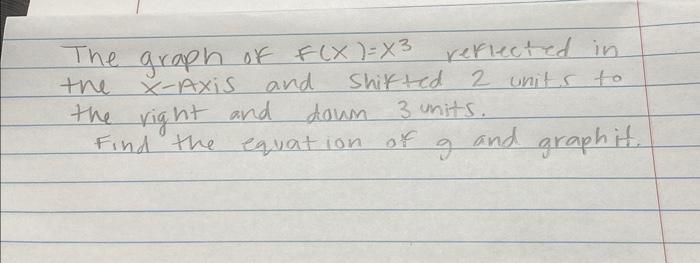 The graph of F(X)=X³ reflected in
the X-Axis and Shifted 2 units to
the right and down 3 units.
Find the equation of g and graph it.